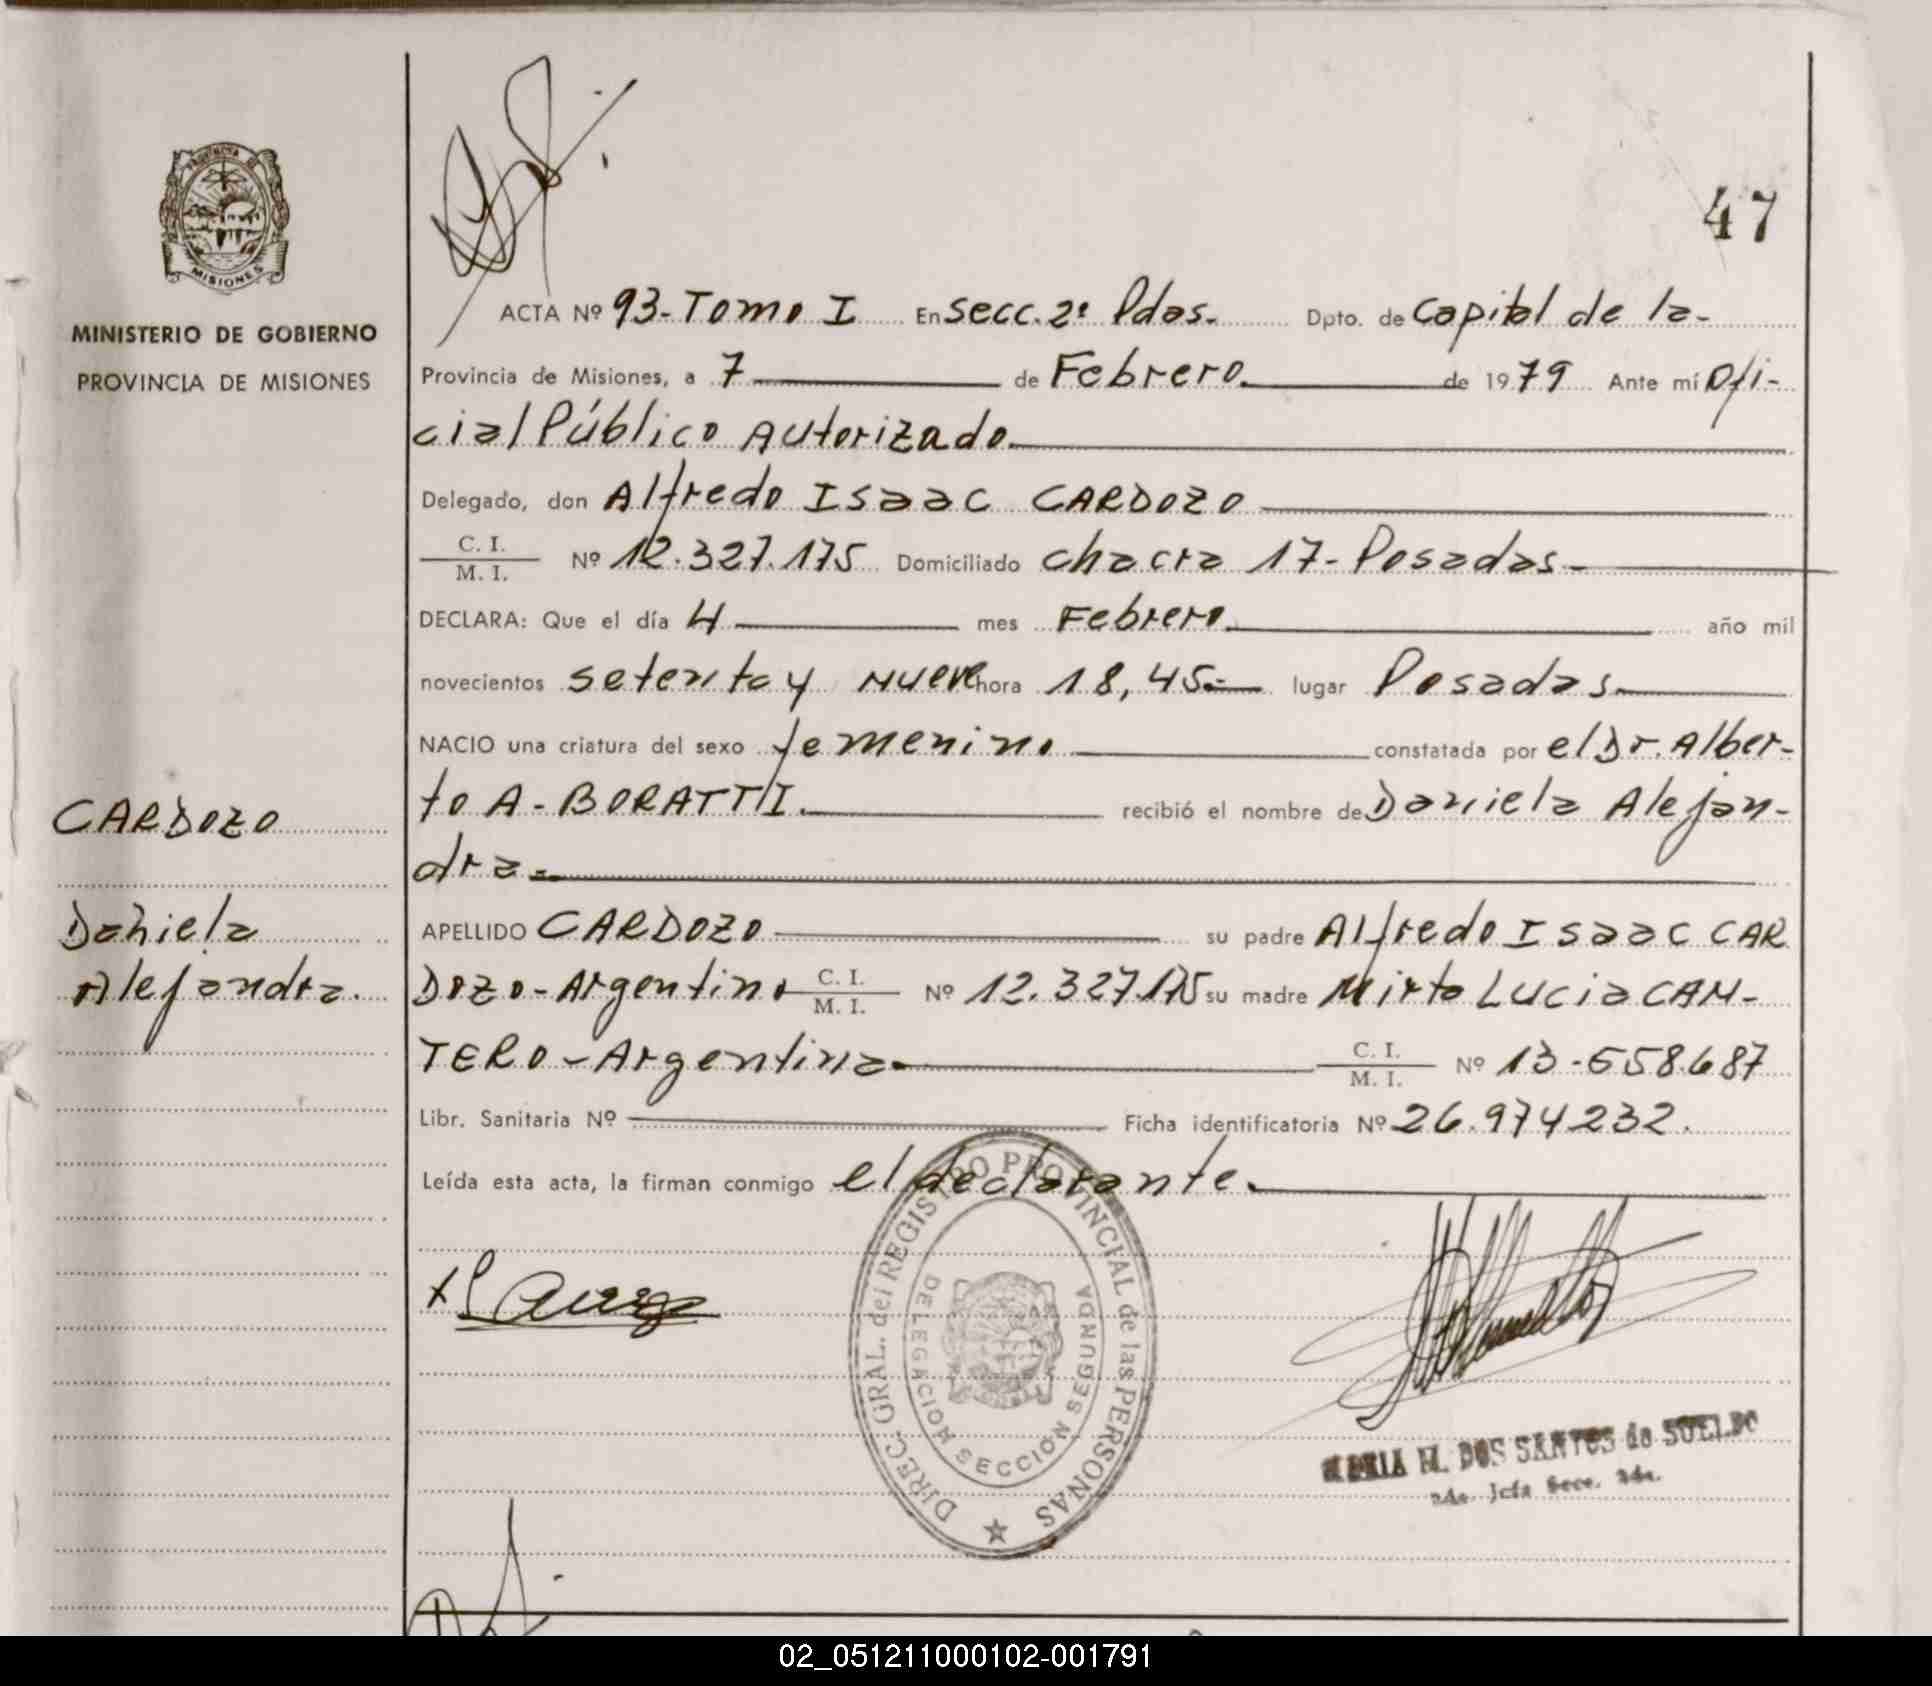 47
PROVINCIA DE
MISIONES
MINISTERIO DE GOBIERNO
PROVINCIA DE MISIONES
ACTA Nº 93-Tomo I En Secc. 2ª Pdas. Dpto. de Capital de la-
Provincia de Misiones, a 7 de Febrero de 1979 Ante mí Ofi-
cial Público Autorizado
Delegado, don Alfredo Isaac CARDOZO
C. I.
M. I. Nº 12.327.175 Domiciliado Chacra 17-Posadas-
DECLARA: Que el día 4 mes Febrero año mil
novecientos setenta y Nueve hora 18,45.- lugar Posadas
NACIO una criatura del sexo femenino constatada por el Dr. Alber-
to A- BORATTI. recibió el nombre de Daniela Alejan-
dra.
APELLIDO CARDOZO su padre Alfredo Isaac CAR
DOZO-Argentino C. I. M. I. Nº 12.327.175 su madre Mirta Lucia CAN-
TERO-Argentina C. I. M. I. Nº 13-558.687
Libr. Sanitaria Nº Ficha identificatoria Nº 26.974232.
Leída esta acta, la firman conmigo el declarante.
CARDOZO
Daniela
Alejandra.
DIREC. GRAL. del REGISTRO PROVINCIAL de las PERSONAS
DELEGACION SECCION SEGUNDA
MARIA M. DOS SANTOS de SUELDO
2da. Jefa Secc. 2da.
02_051211000102-001791